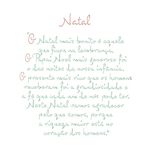 Natal
"O Natal mais bonito é aquele
que fica na lembrança,
O Papai Noel mais famoso foi
o das noites da nossa infância,
O presente mais rico que os homens
receberam foi a fraternidade e
a fé que cada um de nós pode ter.
Neste Natal vamos agradecer
pelo que somos, porque
a riqueza maior está no
coração dos homens."